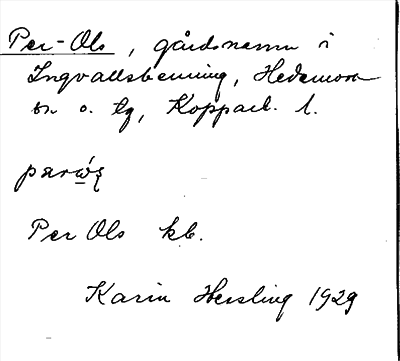 Per-Ols, gårdsnamn i
Ingvallsbenning, Hedemora
sn o. tg, Kopparb. l.
Per Ols kb.
Karin Hessling 1929